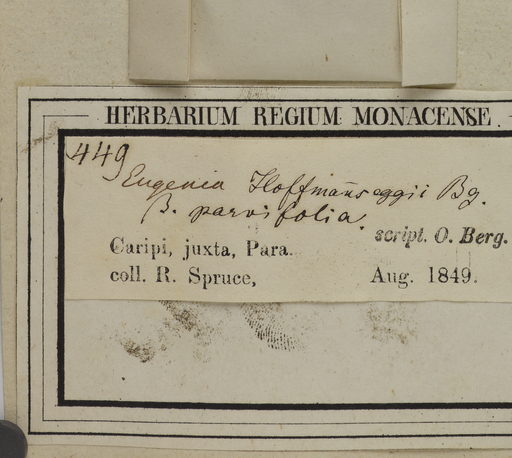 HERBARIUM REGIUM MONACENSE.
449
Eugenia Hoffmannseggii Bg.
β. parvifolia.
script. O. Berg.
Caripi, juxta, Para.
coll. R. Spruce, Aug. 1849.